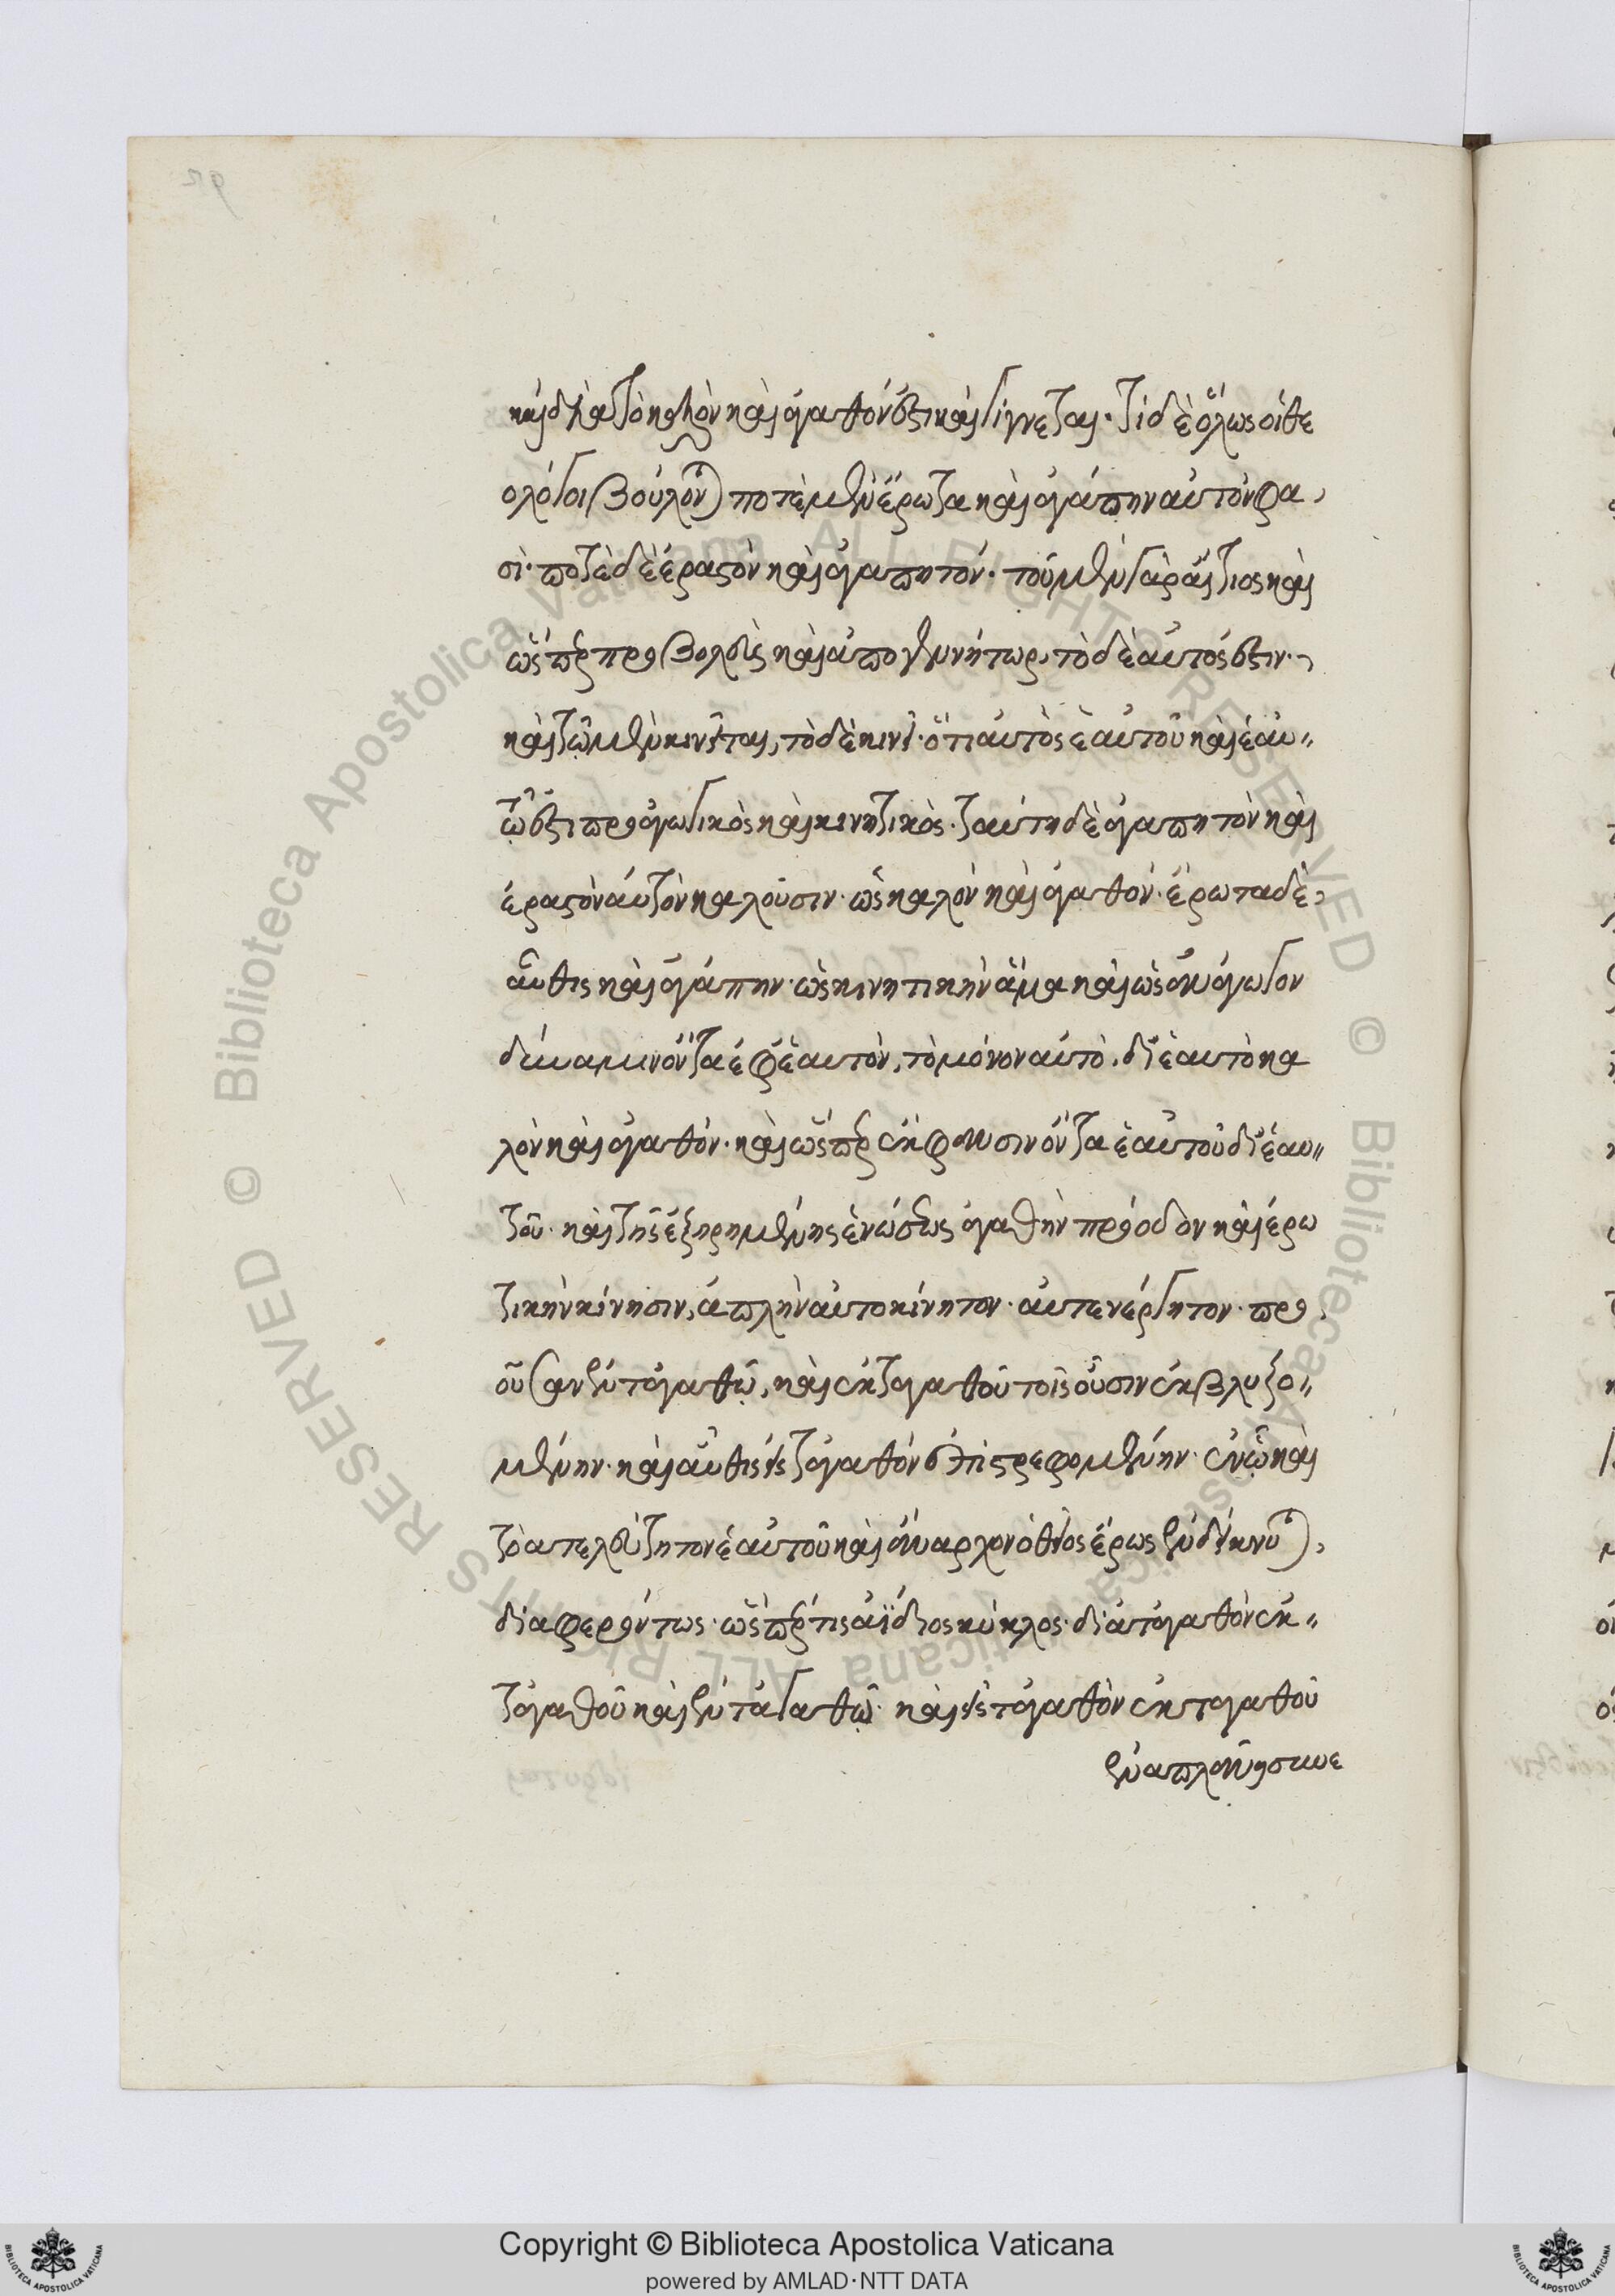 καὶ διὰ τὸ καλὸν καὶ ἀγαθόν ἐστι καὶ γίγνεται· τί δὲ ὅλως οἱ θε
ολόγοι βούλονται ποτὲ μὲν ἔρωτα καὶ ἀγάπην αὐτόν φα
σὶ· ποτὲ δὲ ἐραστὸν καὶ ἀγαπητόν· τοῦ μὲν γὰρ αἴτιος καὶ
ὥσπερ προβολεὺς καὶ ἀπογεννήτωρ, τὸ δὲ αὐτός ἐστιν·
καὶ τῷ μὲν κινεῖται, τὸ δὲ κινεῖ· ὅτι αὐτὸς ἑαυτοῦ καὶ ἑαυ〃
τῷ ἐστι προαγωγικὸς καὶ κινητικὸς· ταύτη δὲ ἀγαπητὸν καὶ
ἐραστὸν αὐτὸν καλοῦσιν· ὡς καλὸν καὶ ἀγαθόν· ἔρωτα δὲ
αὖθις καὶ ἀγάπην· ὡς κινητικὴν ἅμα καὶ ὡς ἀναγωγον
δύναμιν ὄντα ἐφ' ἑαυτὸν, τὸ μόνον αὐτὸ δι' ἑαυτὸ κα
λὸν καὶ ἀγαθόν· καὶ ὥσπερ ἔκφανσιν ὄντα ἑαυτοῦ δι' ἑαυ〃
τοῦ· καὶ τῆς ἐξῃρημένης ἑνώσεως ἀγαθὴν πρόοδον καὶ ἐρω
τικὴν κίνησιν, ἁπλὴν αὐτοκίνητον· αὐτενέργητον· προ
οῦσαν ἐν τἀγαθῷ, καὶ ἐκ τἀγαθοῦ τοῖς οὖσιν ἐκβλυζο〃
μένην· καὶ αὖθις εἰς τἀγαθὸν ἐπιστρεφομένην· ἐν ᾧ καὶ
τὸ ἀτελεύτητον ἑαυτοῦ καὶ ἄναρχον ὁ θεῖος ἔρως ἐνδείκνυται
διαφερόντως· ὥσπερ τις ἀΐδιος κύκλος· διὰ τἀγαθὸν ἐκ〃
τἀγαθοῦ καὶ ἐν τἀγαθῷ· καὶ εἰς τἀγαθὸν ἐκ τἀγαθοῦ
Copyright © Biblioteca Apostolica Vaticana
powered by AMLAD·NTT DATA